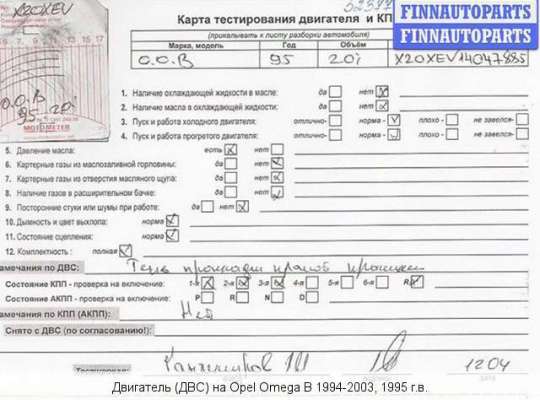 X20XEV
Карта тестирования двигателя и КП
FINNAUTOPARTS
FINNAUTOPARTS
(прикалывать к листу разборки автомобиля)
Марка, модель Год Объём
О.О.В 95 2.0i X20XEV14047885
7 8 9 10 11 12 13 14 15 16 17
О.О.В
95 2.0i
MOTOMETER
1. Наличие охлаждающей жидкости в масле: да нет
2. Наличие масла в охлаждающей жидкости: да нет
3. Пуск и работа холодного двигателя: отлично- норма - плохо - не завелся-
4. Пуск и работа прогретого двигателя: отлично- норма - плохо - не завелся-
5. Давление масла: есть нет
6. Картерные газы из маслозаливной горловины: да нет
7. Картерные газы из отверстия масляного щупа: да нет
8. Наличие газов в расширительном бачке: да нет
9. Посторонние стуки или шумы при работе: да нет
10. Дымность и цвет выхлопа: норма
11. Состояние сцепления: норма
12. Комплектность : полная
амечания по ДВС: Течь прокладки клапан. крышки
Состояние КПП - проверка на включение: 1-я 2-я 3-я 4-я 5-я 6-я R
Состояние АКПП - проверка на включение: P R N D
амечания по КПП (АКПП): Нет
Снято с ДВС (по согласованию!):
Тестировал: 1204
Двигатель (ДВС) на Opel Omega B 1994-2003, 1995 г.в.